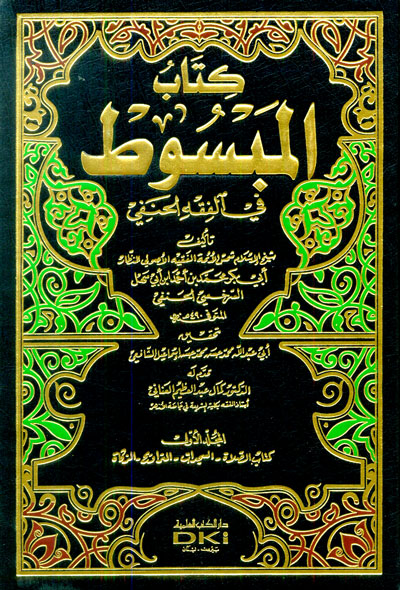 كتاب
المبسوط
في الفقه الحنفي
تأليف
شيخ الإسلام شمس الأئمة الفقيه الأصولي النظار
أبي بكر محمد بن أحمد بن أبي سهل
السرخسي الحنفي
المتوفى ٤٩٠ هجري
تحقيق
أبي عبد الله محمد حسن محمد حسن إسماعيل الشافعي
قدم له
الدكتور كمال عبد العظيم العناني
أستاذ الفقه بكلية الشريعة في جامعة الأزهر
المجلد الأول
كتاب الصلاة - السجدات - التراويح - الزكاة
دار الكتب العلمية
DKi
بيروت - لبنان